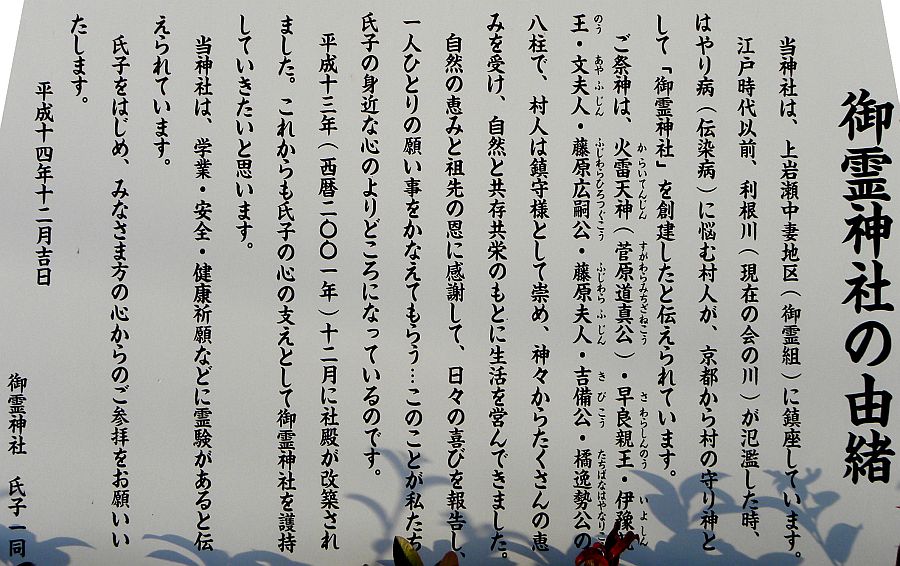 御霊神社の由緒
当神社は、上岩瀬中妻地区(御霊組)に鎮座しています。
江戸時代以前、利根川(現在の会の川)が氾濫した時、
はやり病(伝染病)に悩む村人が、京都から村の守り神と
して「御霊神社」を創建したと伝えられています。
からいてんじん すがわらみちざねこう さわらしんのう いよしん
ご祭神は、火雷天神(菅原道真公)・早良親王・伊豫親
のう あやふじん ふじわらひろつぐこう ふじわらふじん きびこう たちばなはやなりこう
王・文夫人・藤原広嗣公・藤原夫人・吉備公・橘逸勢公の
八柱で、村人は鎮守様として崇め、神々からたくさんの恵
みを受け、自然と共存共栄のもとに生活を営んできました。
自然の恵みと祖先の恩に感謝して、日々の喜びを報告し、
一人ひとりの願い事をかなえてもらう…このことが私たち
氏子の身近な心のよりどころになっているのです。
平成十三年(西暦二〇〇一年)十二月に社殿が改築され
ました。これからも氏子の心の支えとして御霊神社を護持
していきたいと思います。
当神社は、学業・安全・健康祈願などに霊験があると伝
えられています。
氏子をはじめ、みなさま方の心からのご参拝をお願いい
たします。
平成十四年十二月吉日
御霊神社 氏子一同